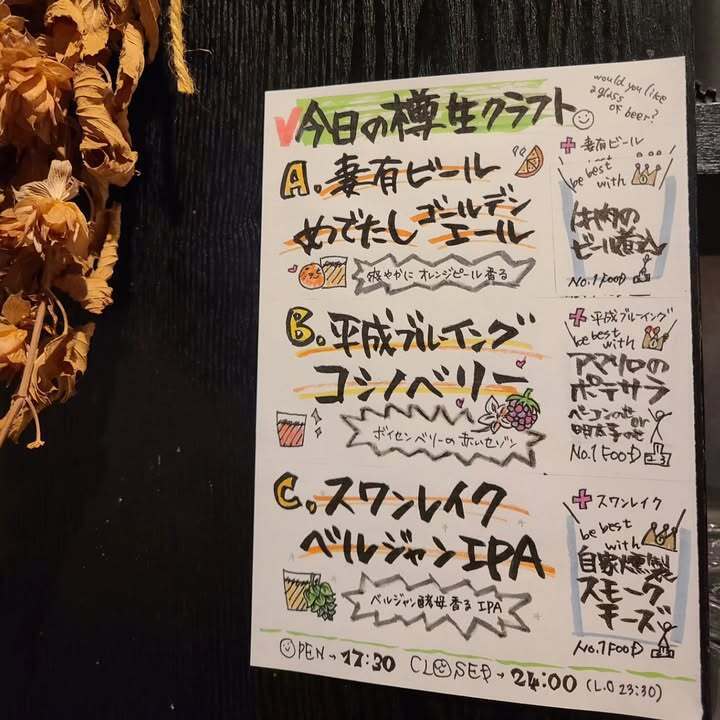 今日の樽生クラフト
would you like
a glass
of beer?
A. 妻有ビール
めでたし ゴールデン
エール
爽やかに オレンジピール 香る
+ 妻有ビール
be best
with
牛肉の
ビール煮込
No.1 FOOD
B. 平成ブルーイング
コシノベリー
ボイセンベリーの赤いセゾン
+ 平成ブルーイング
be best
with
アマリロの
ポテサラ
ベーコンのせ or
明太子のせ
No.1 FOOD
C. スワンレイク
ベルジャンIPA
ベルジャン酵母香る IPA
+ スワンレイク
be best
with
自家燻製
スモーク
チーズ
No.1 FOOD
OPEN→17:30 CLOSED→24:00 (L.O 23:30)